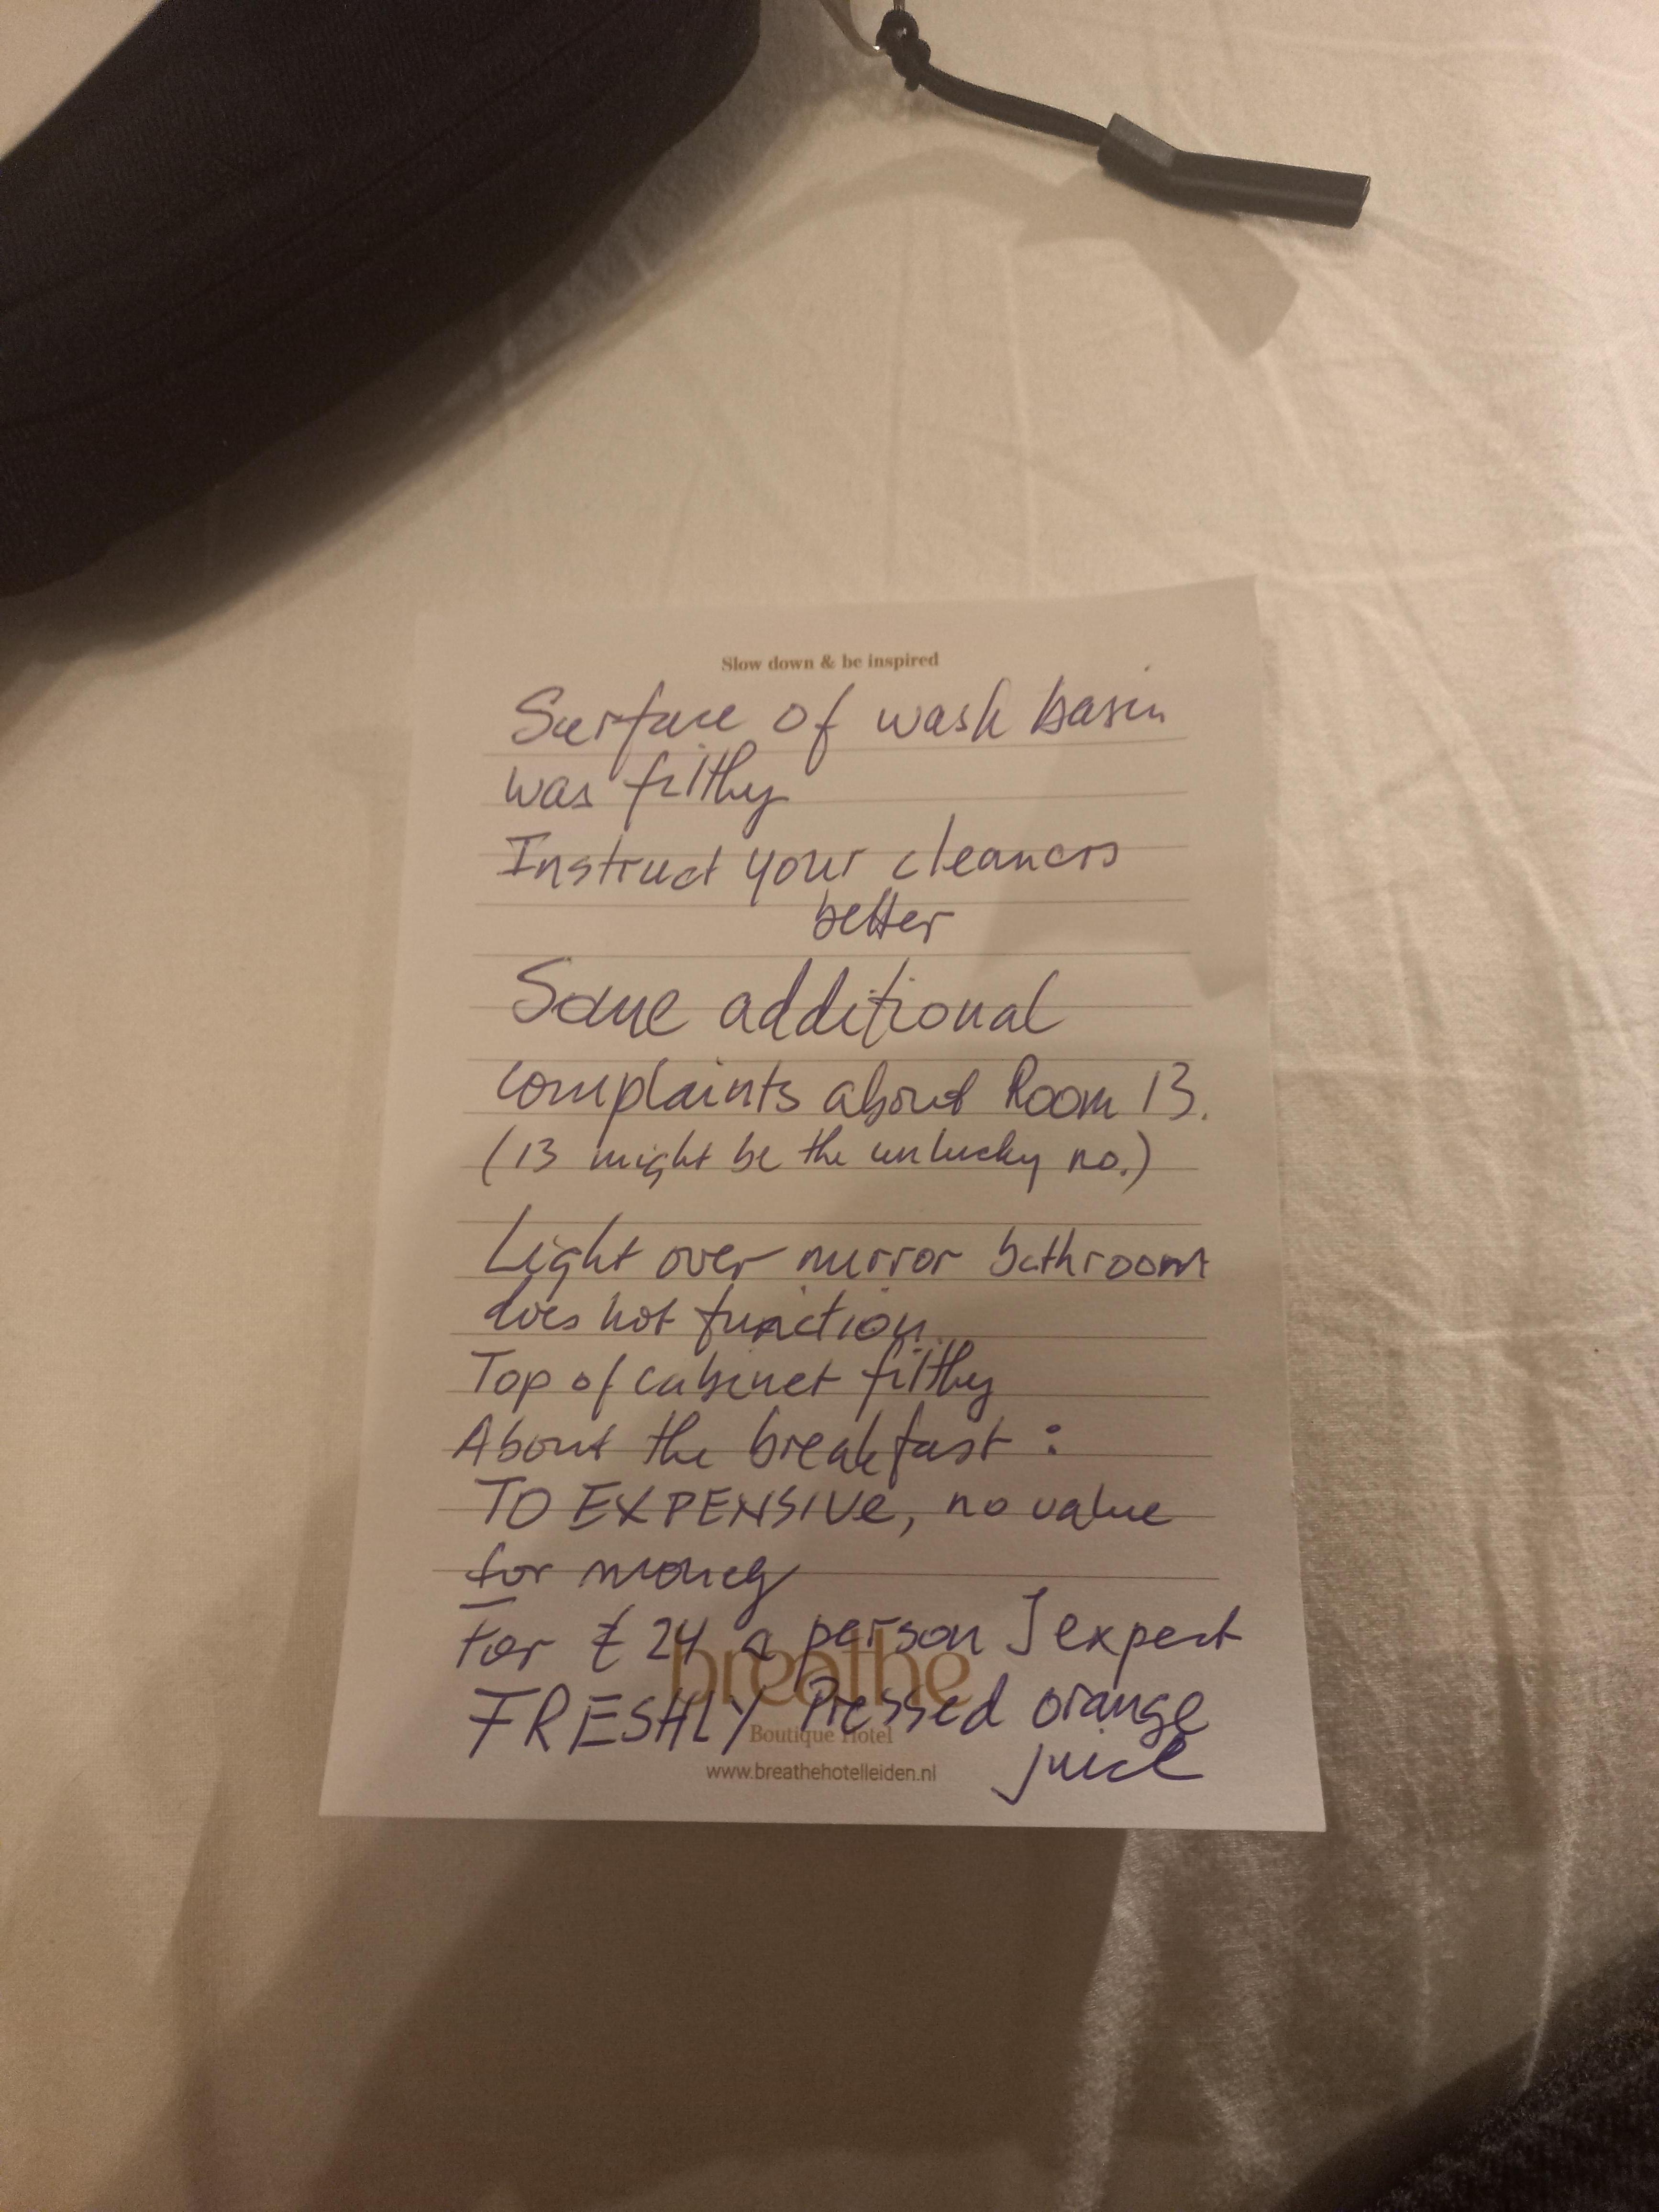 Slow down & be inspired
Surface of wash basin
was filthy
Instruct your cleaners
better
Some additional
complaints about Room 13.
(13 might be the unlucky no.)
Light over mirror bathroom
does not function.
Top of cabinet filthy
About the breakfast :
TO EXPENSIVe, no value
for money
For € 24 a person I expect
FRESHLY Pressed orange
juice
breathe
Boutique Hotel
www.breathehotelleiden.nl